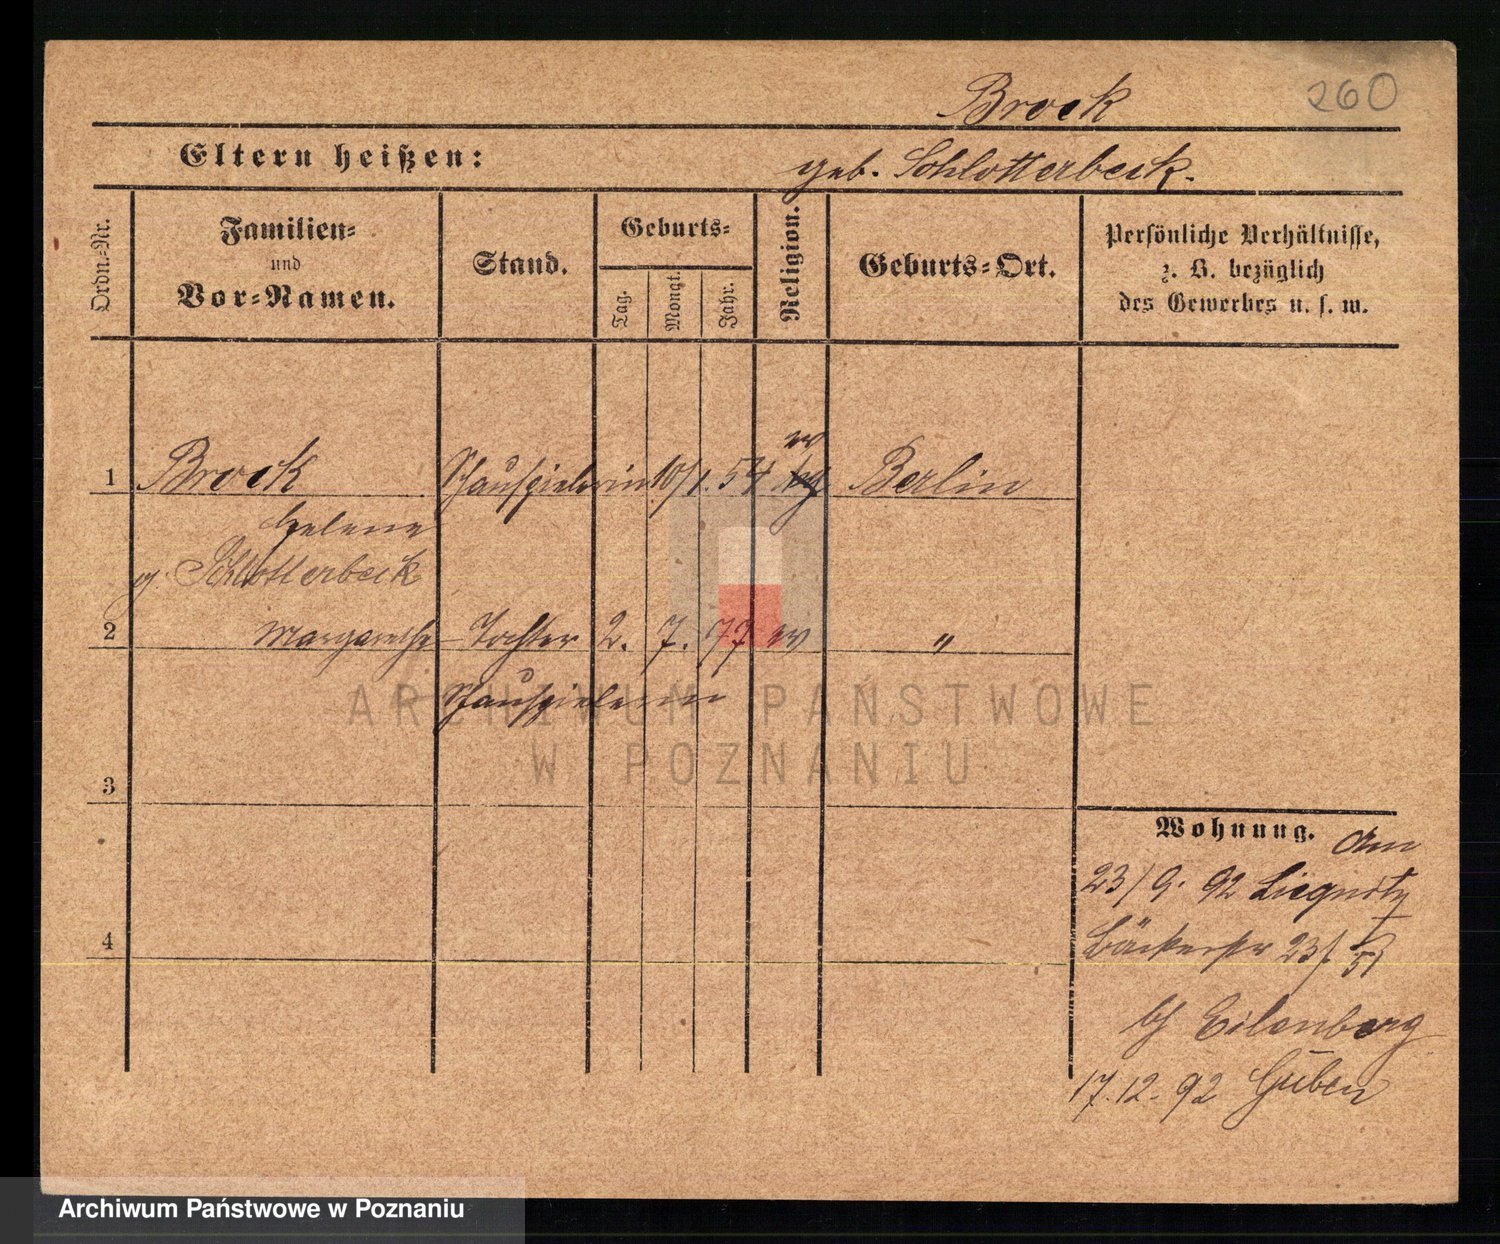 260
Brock
Eltern heißen:
geb. Schlotterbeck.
Ordn.-Nr.
Familien-
und
Vor-Namen.
Stand.
Geburts-
Tag.
Monat.
Jahr.
Religion.
Geburts-Ort.
Persönliche Verhältnisse,
z. B. bezüglich
des Gewerbes u. s. w.
ev
1 Brock Schauspielerin 10/1. 54 Berlin
Helene
g. Schlotterbeck
2 Margarethe Tochter 2. 7. 77 ev "
Schauspielerin
ARCHIWUM PAŃSTWOWE
W POZNANIU
3
Wohnung.
23/9. 92 Liegnitz
4
Bäckerstr 23/.
b/ Eilenberg
17.12.92 Guben
Archiwum Państwowe w Poznaniu